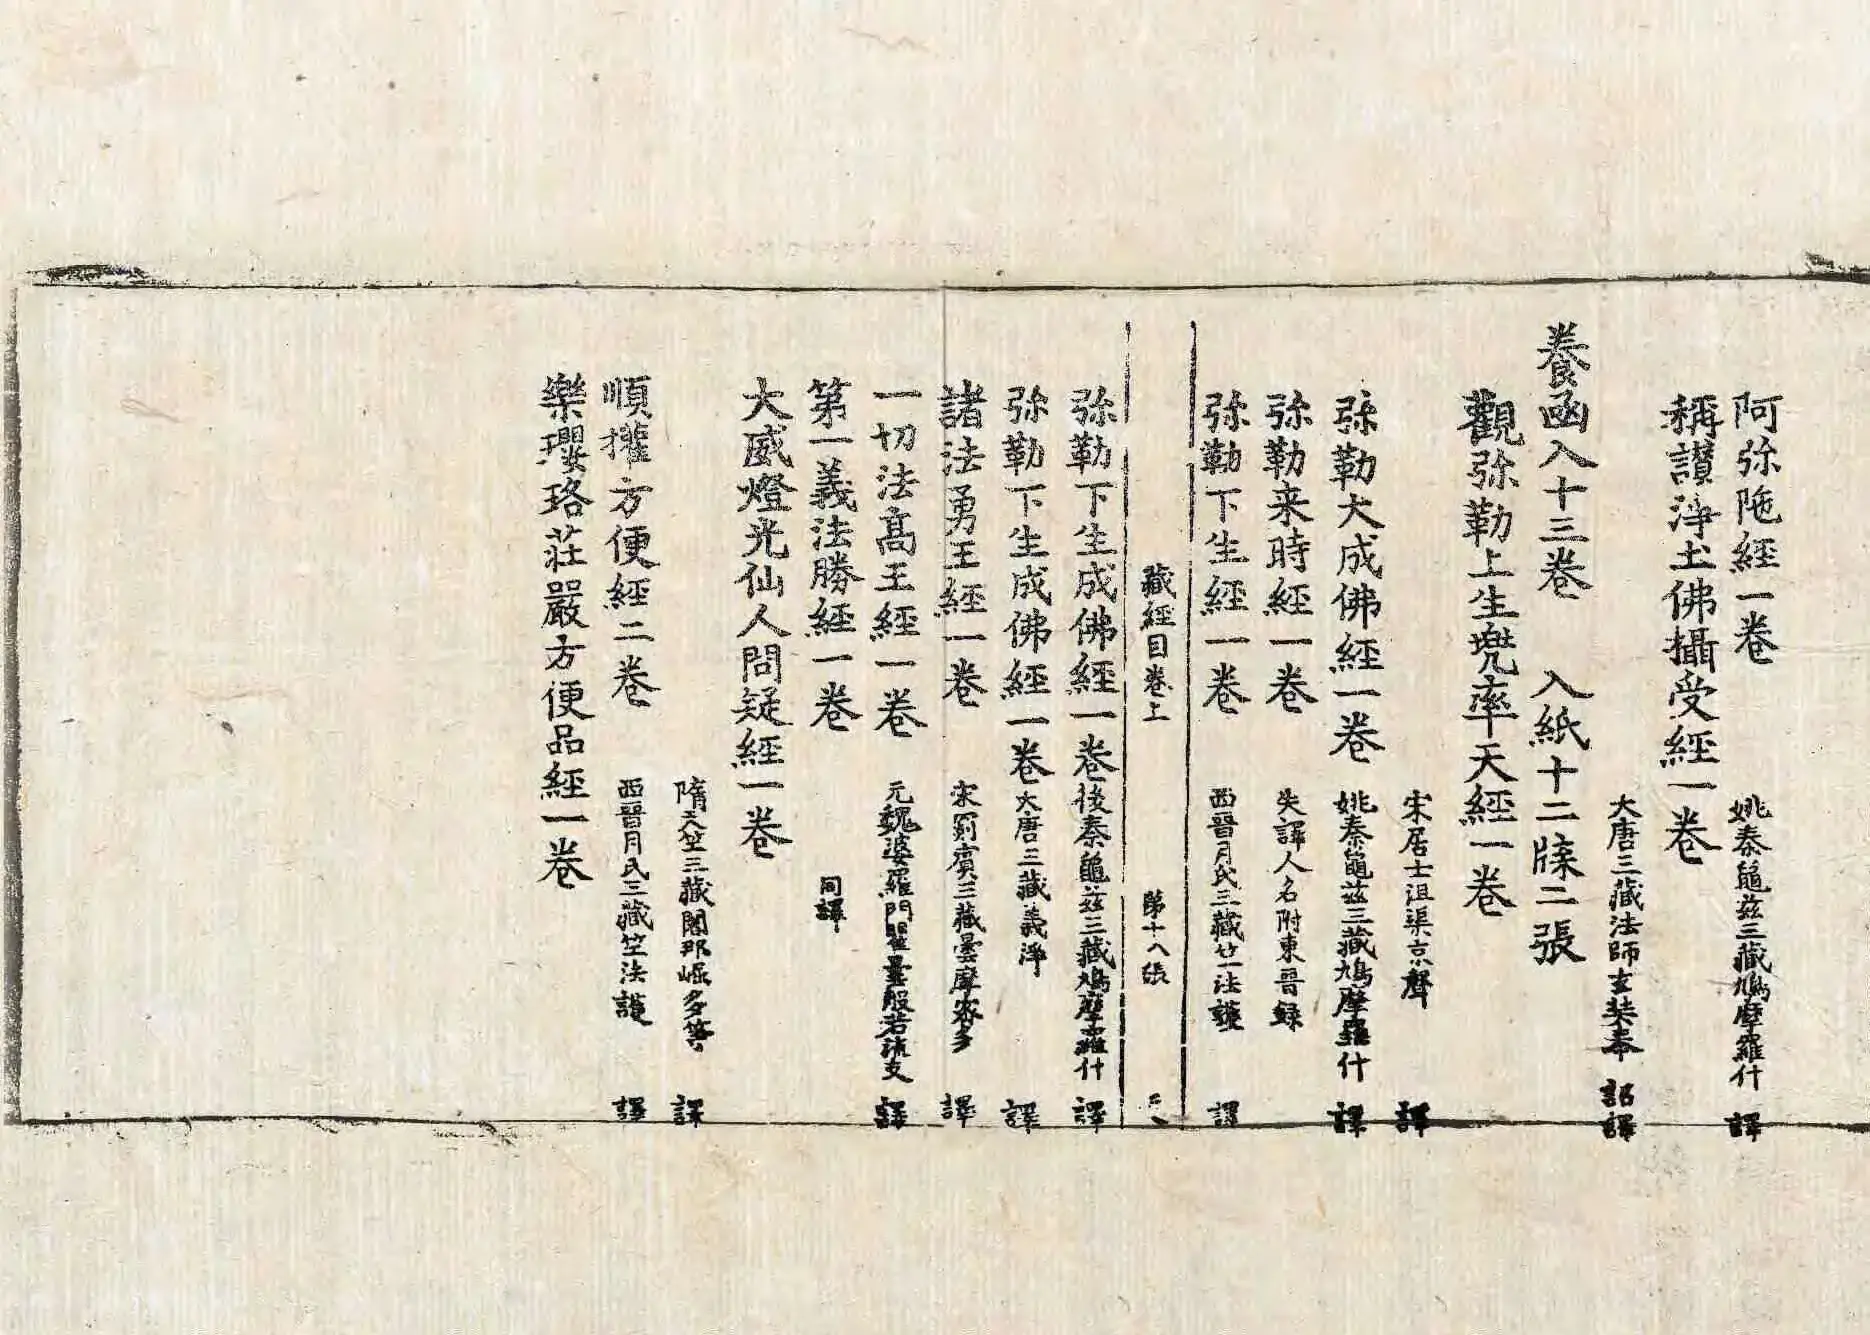 阿弥陁經一卷 姚秦龜兹三藏鳩摩羅什 譯
稱讃淨土佛攝受經一卷
大唐三藏法師玄奘奉 詔譯
養函入十三卷 入紙十二牒二張
觀弥勒上生兜率天經一卷
宋居士沮渠京聲 譯
弥勒大成佛經一卷 姚秦龜兹三藏鳩摩羅什 譯
弥勒来時經一卷 失譯人名附東晉録
弥勒下生經一卷 西晉月氏三藏竺法護 譯
藏經目卷上 第十八張
弥勒下生成佛經一卷 後秦龜兹三藏鳩摩羅什 譯
弥勒下生成佛經一卷 大唐三藏義淨 譯
諸法勇王經一卷 宋罽賓三藏曇摩蜜多 譯
一切法髙王經一卷 元魏婆羅門瞿曇般若流支 譯
第一義法勝經一卷 同譯
大威燈光仙人問疑經一卷
隋天竺三藏闍那崛多等 譯
順權方便經二卷 西晉月氏三藏竺法護 譯
樂瓔珞莊嚴方便品經一卷